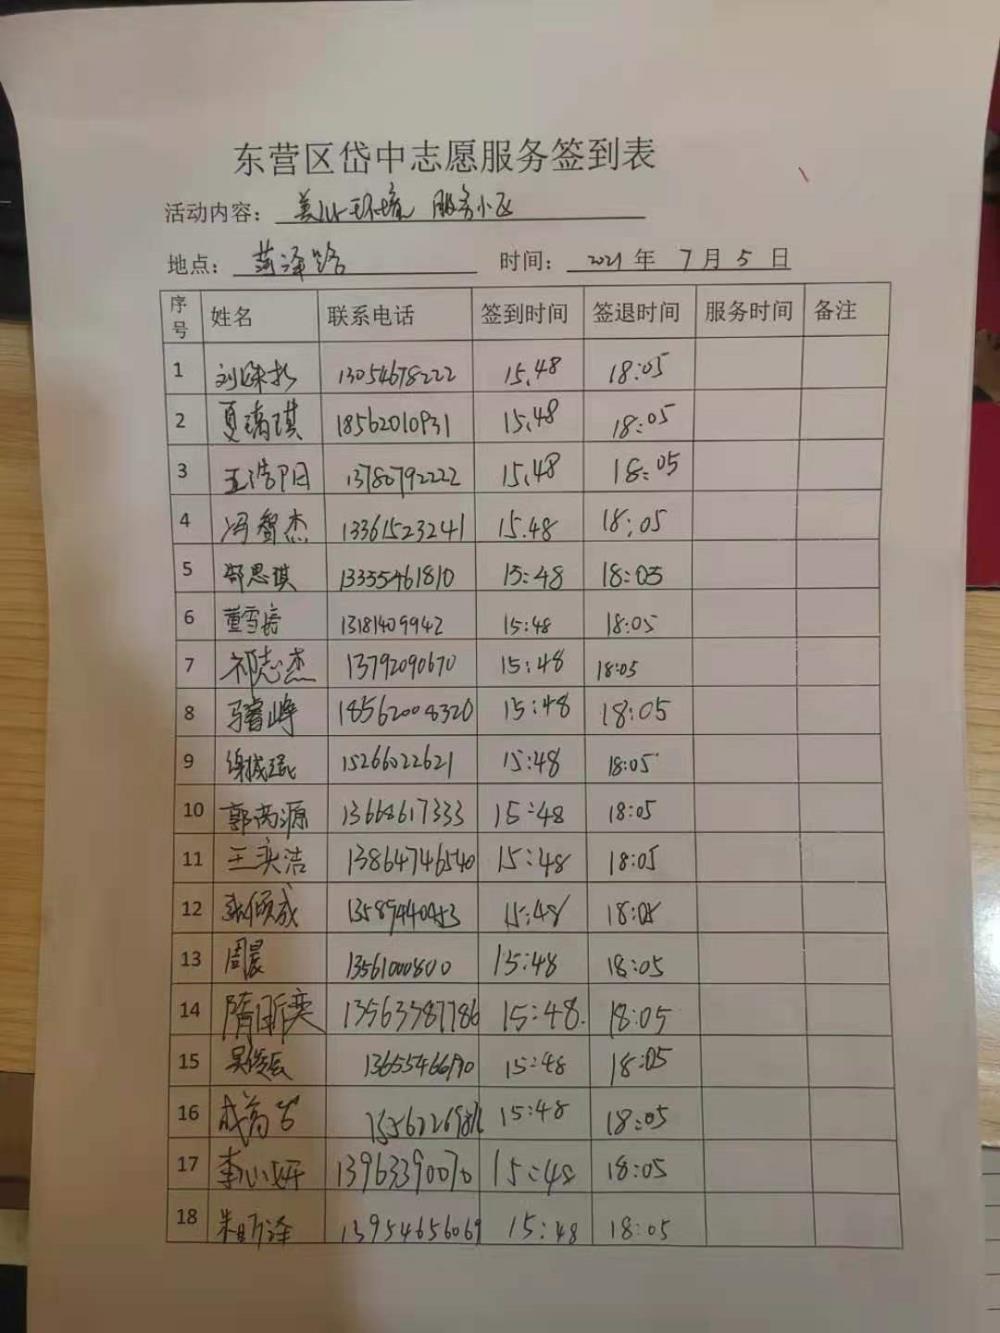 东营区岱中志愿服务签到表
活动内容： 美化环境 服务小区
地点： 菏泽路 时间： 2021 年 7 月 5 日
序号 姓名 联系电话 签到时间 签退时间 服务时间 备注
1 13054678222 15.48 18:05
2 夏瑀琪 18562010931 15.48 18:05
3 王浩阳 13780792222 15.48 18:05
4 冯智杰 13361523241 15.48 18:05
5 郜思琪 13355461810 15:48 18:05
6 董雪榕 13181409942 15:48 18:05
7 祁志杰 13792090670 15:48 18:05
8 马睿峥 18562008320 15:48 18:05
9 15266022621 15:48 18:05
10 郭尚源 13668617333 15:48 18:05
11 王奕洁 13864746540 15:48 18:05
12 张倾成 15:48 18:05
13 周晨 13561000800 15:48 18:05
14 隋昕奕 13563387786 15:48. 18:05
15 吴俊辰 13655466190 15:48 18:05
16 15:48 18:05
17 李心妍 13963390070 15:48 18:05
18 朱昕泽 13954656069 15:48 18:05